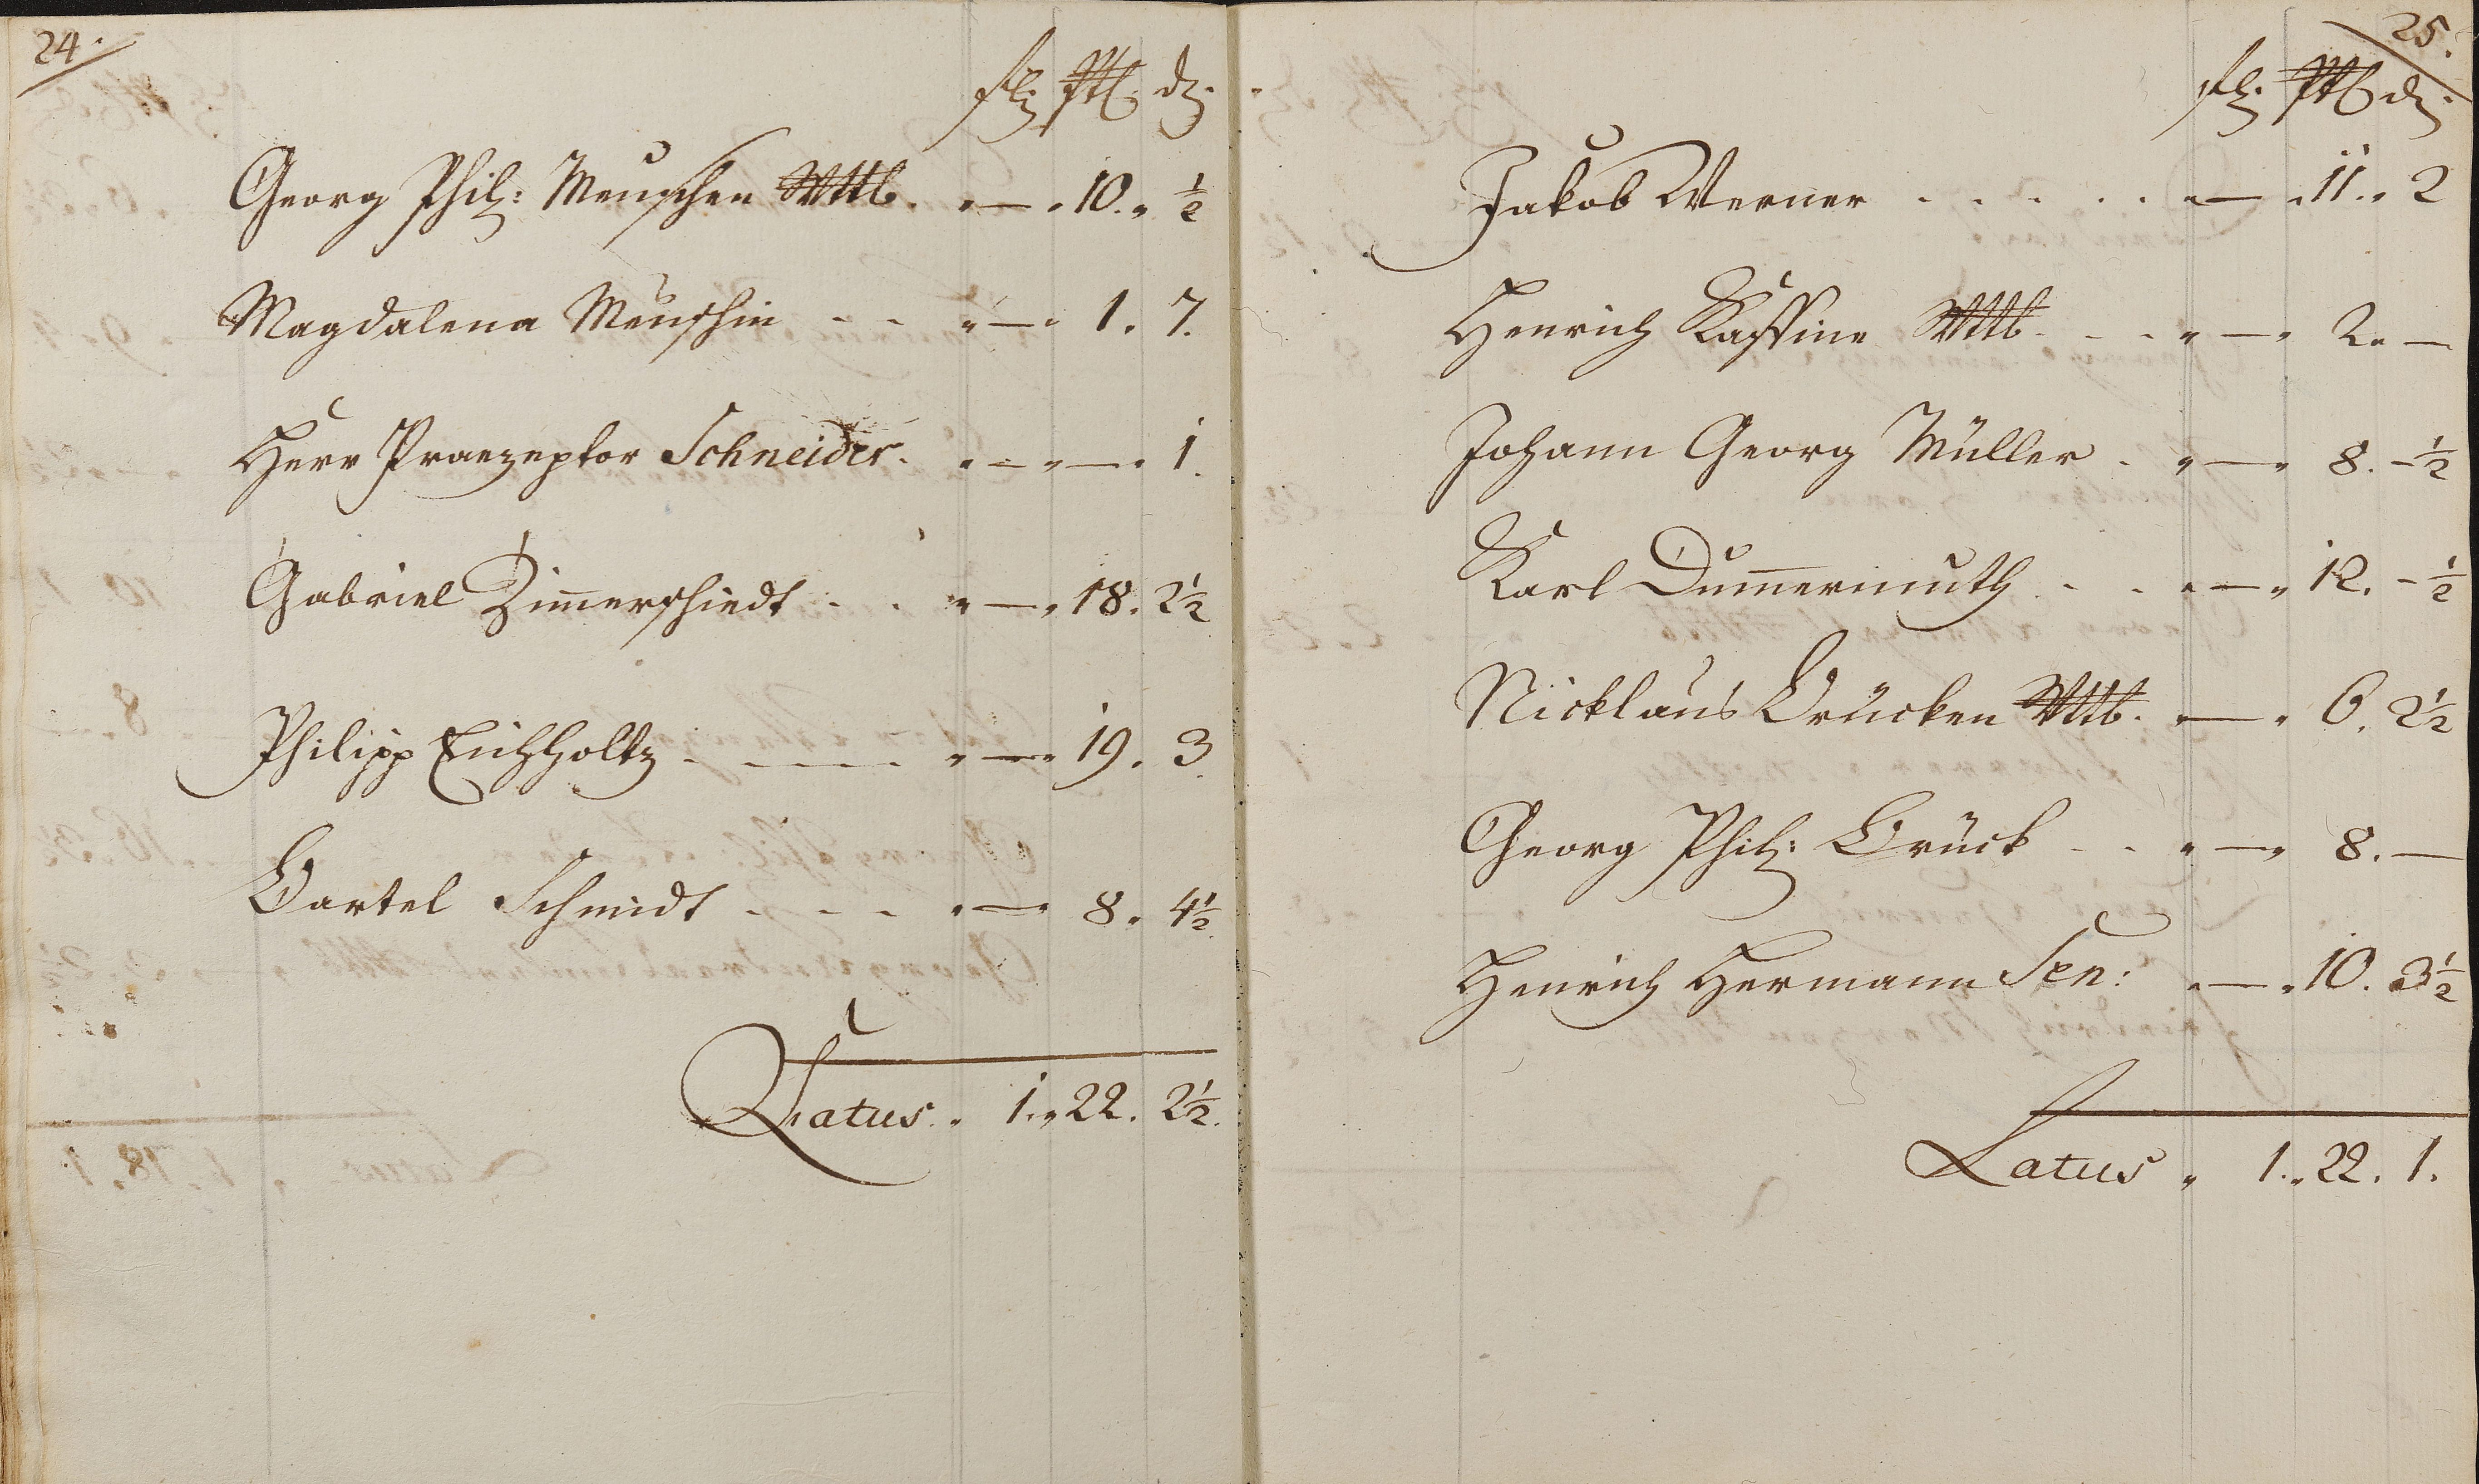 24.
fl: Alb. d.
Georg Phil: Meuschen Wttb. . " — " 10. " ½
Magdalena Meuschin - - " — " 1. 7.
Herr Praezeptor Schneider. " — " — " 1.
Gabriel Zimerschiedt . . " — " 18. 2½
Philipp Eichholtz . — — . " — " 19. 3.
Bartel Schmidt - - - " — " 8. 4½.
Latus. " 1. " 22. 2½.
25.
fl: Alb. d.
Jakob Werner . . . . . " — " 11. " 2
Henrich Kassine Wttb. - - " — " 2. " —
Johann Georg Müller . " — " 8. - ½
Karl Dumermuth . - . " — " 12. - ½
Nicklaus Brücken Wttb. " — " 6. 2½
Georg Phil: Brück - - " — " 8. —
Henrich Hermann Sen: " — " 10. 3½
Latus " 1. " 22. 1.